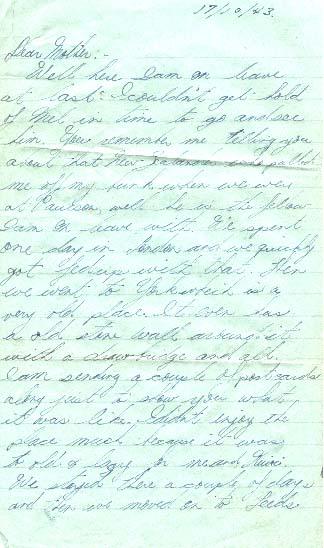 17/10/43.
Dear Mother:-
Well here I am on leave
at last. I couldn't get hold
of Mel in time to go and see
him. You remember me telling you
about that New Zealander who pulled
me off my bunk when we were
at Paulson, well he is the fellow
I am on leave with. We spent
one day in London and we quickly
got fedup with that. Then
we went to York which is a
very old place. It even has
a old stone wall around it
with a drawbridge and all.
I am sending a couple of postcards
along just to show you what
it was like. I didn't enjoy the
place much because it was
to old & for me and Kiwi.
We stayed there a couple of days
and then we moved on to Leeds